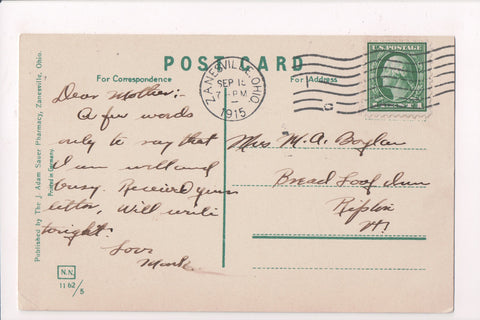 POST CARD
For Correspondence
For Address
ZANESVILLE, OHIO.
SEP 15
7 - PM
1915
U.S. POSTAGE
Dear Mother:-
A few words
only to say that
I am well and
busy. Received your
letter, Will write
tonight.
Love
Mrs. M. A. Boylan
Bread Loaf Inn
Ripton
Vt.
Published by The J. Adam Sauer Pharmacy, Zanesville, Ohio.
Printed in Germany
N.N.
11 62/5